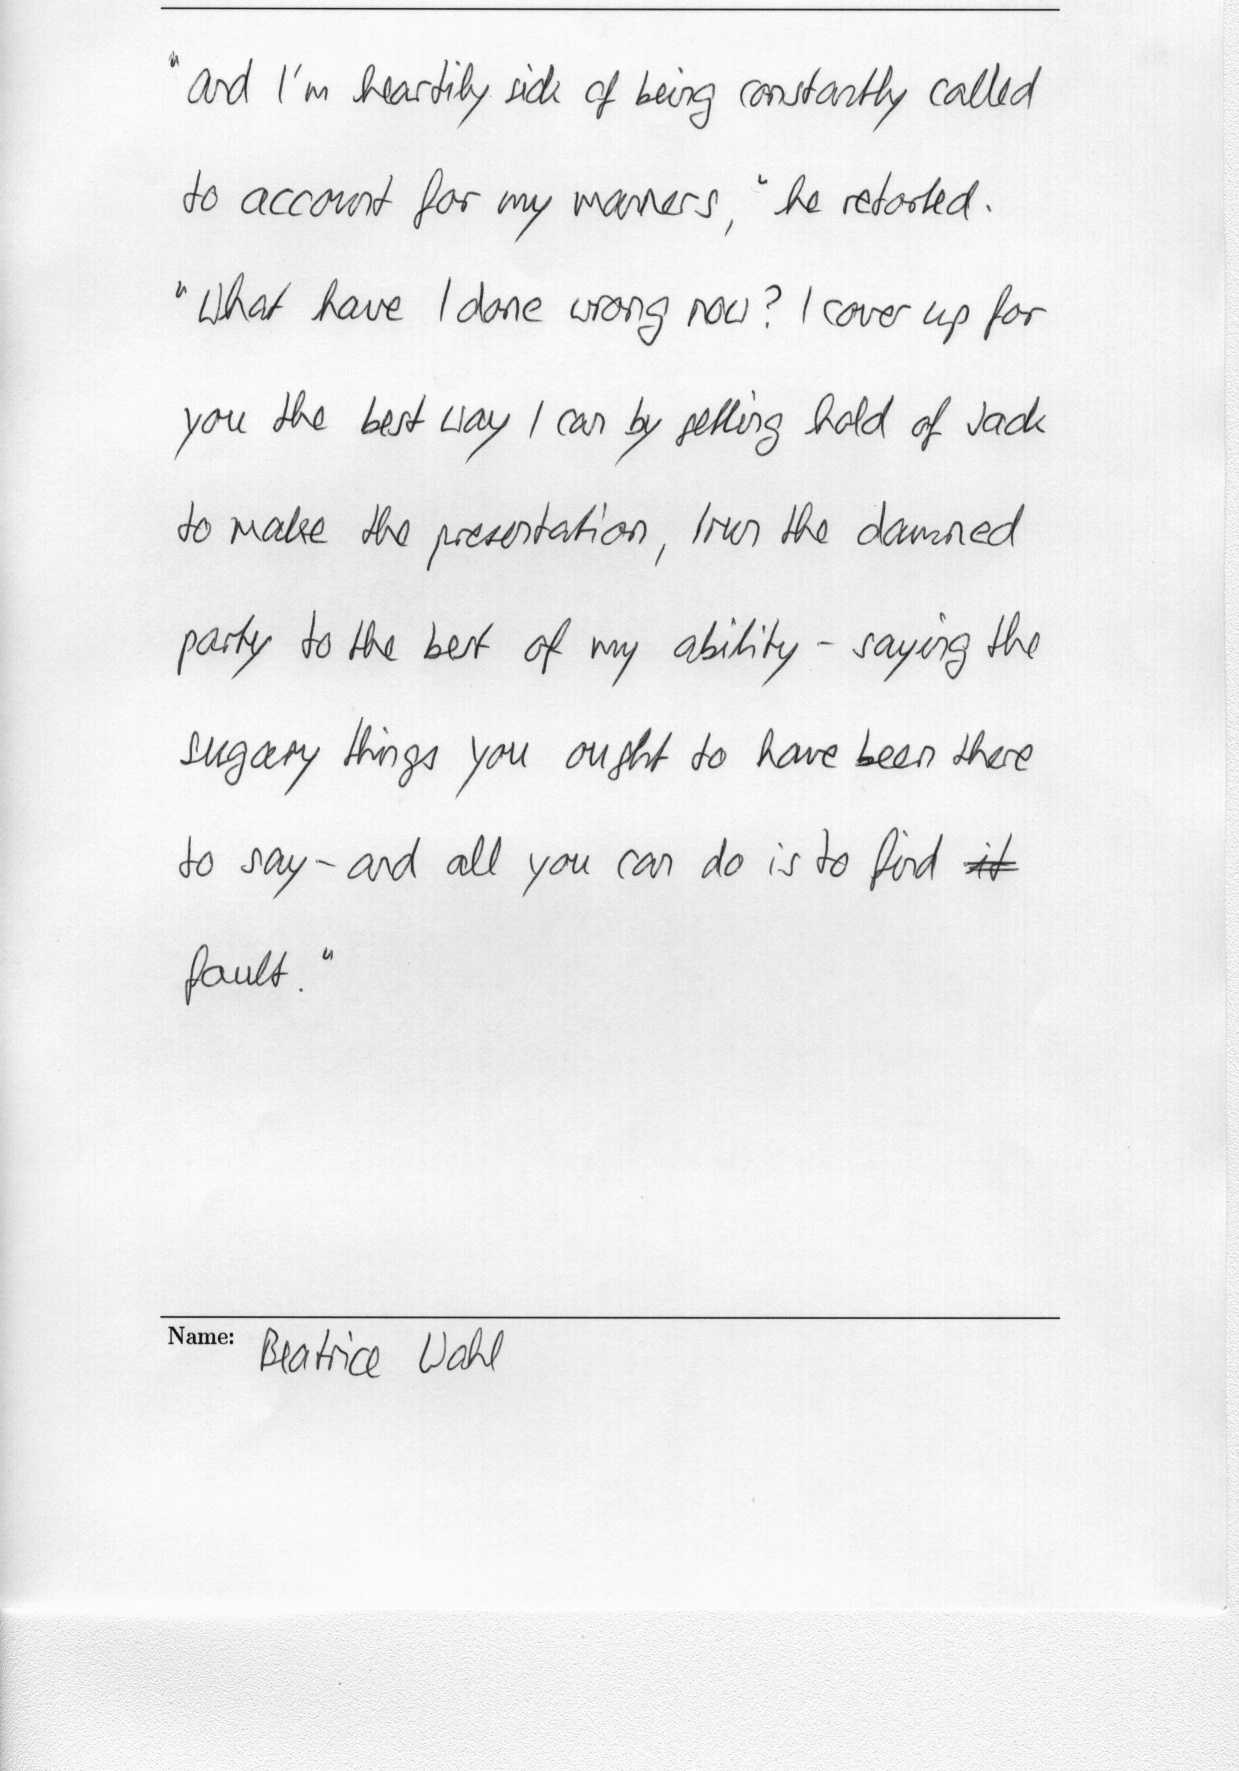 "And I'm heartily sick of being constantly called
to account for my manners," he retorted.
"What have I done wrong now? I cover up for
you the best way I can by getting hold of Jack
to make the presentation, I run the damned
party to the best of my ability - saying the
sugary things you ought to have been there
to say - and all you can do is to find it
fault."
Name: Beatrice Wahl